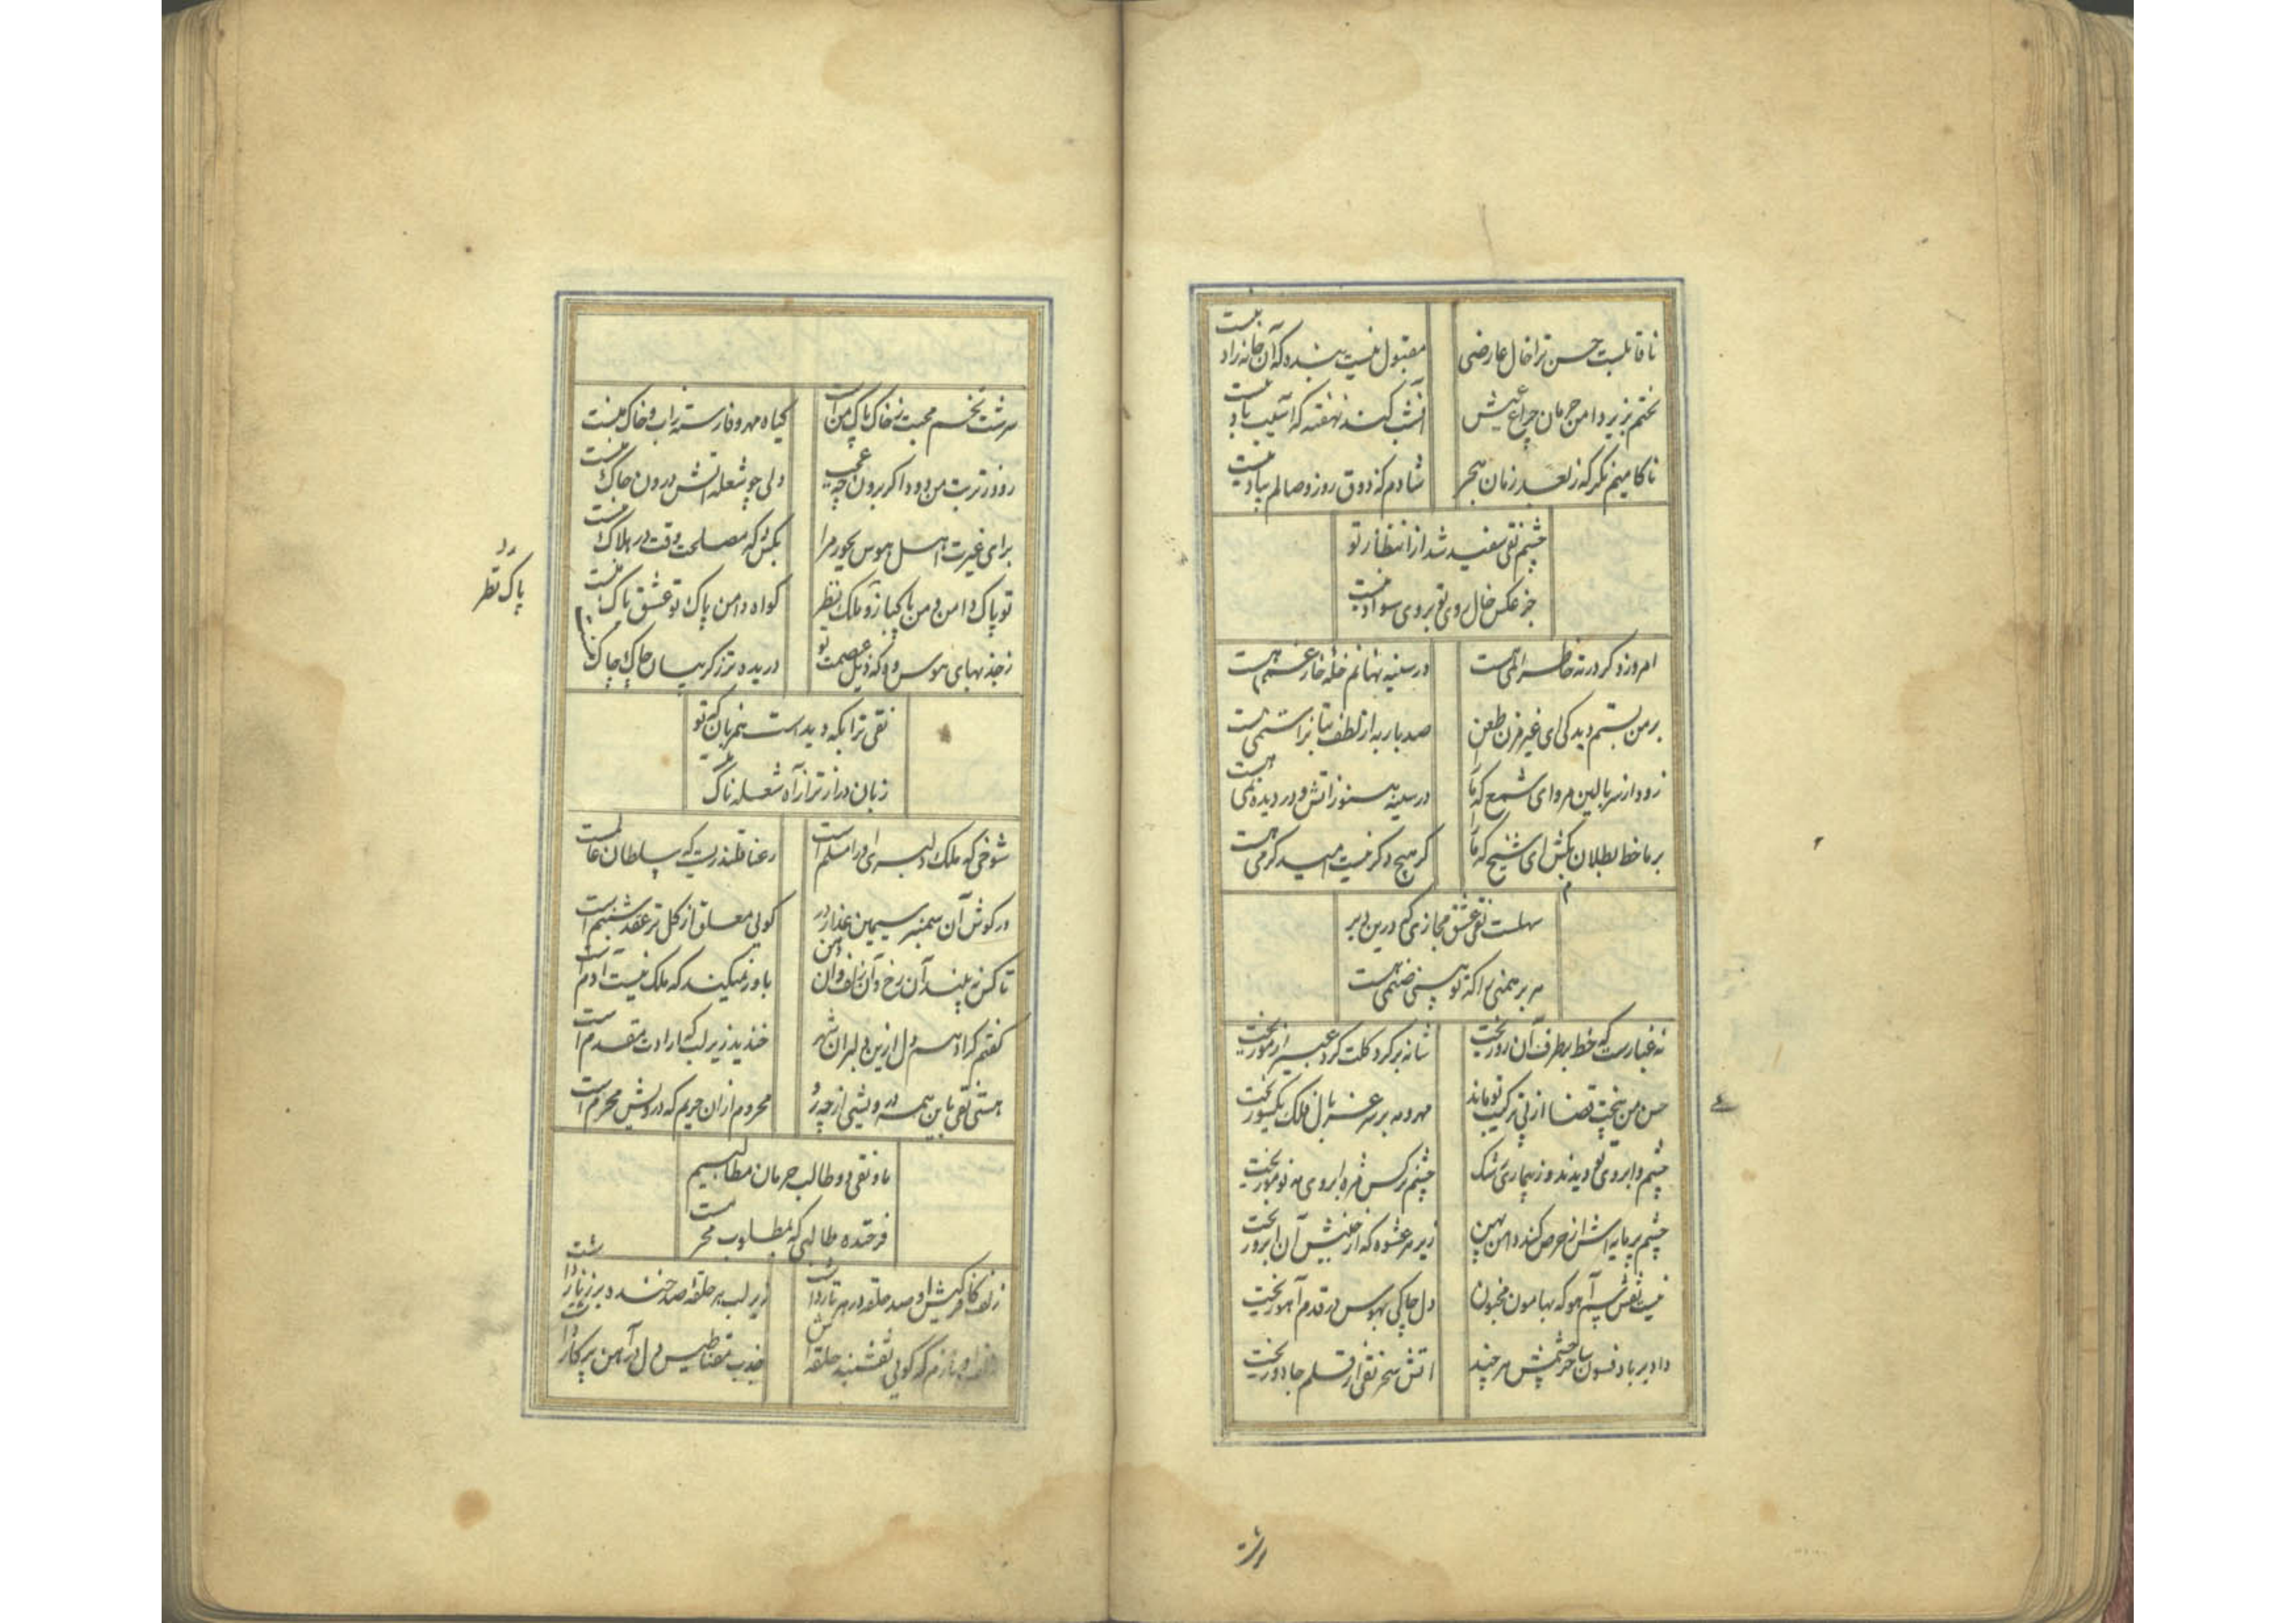 ناقابلیست حسن ترا خال عارضی مقبول نیست بنده که آن خانه زاد نیست
بختم بزیر دامن حرمان چراغ عیش
ناکامیم نکر که ز بعد زمان هجر شادم که ذوق روز وصالم بیاد نیست
چشم نقی سفید شد از انتظار تو
جز عکس خال روی تو بروی سواد نیست
امروز دکر درته خاطر المی هست در سینه نهانم خله خار غمی هست
بر من بستم دید کی ای غیر مزن طعن صد بار به از لطف بتانرا ستمی هست
زود از سر بالین مرو ای شمع که ما را در سینه هنوز اتش و در دیده نمی هست
بر ما خط بطلان مکش ای شیخ که ما را کر هیچ دکر نیست امید کرمی هست
سهلست نقی عشق مجازی که درین دیر
هر برهمنی را که تو بینی صنمی هست
نه غبارست که خط بطرف آن رو ریخت شانه بر کرد کلت کرد عبیر از مو ریخت
حسن من بیخت قضا از پی ترکیب تو ماند مهر و مه بر سر غربال فلک یکسو ریخت
چشم و ابروی تو دیدند و ز بیماری رشک چشم نرکس مژه ابروی مه نو مو ریخت
چشم پر مایه اش از حرص کند دامن پهن زیر هر عشوه که از جنبش آن ابرو ریخت
نیست نقش سم آهو که بهامون مجنون دل چاکی بهوس در قدم آهو ریخت
داد بر باد فسون ساحر چشمش هر چند اتش سحر نقی از قلم جادو ریخت
سرشت تخم محبت ز خاک پاک من است کیاه مهر و فا رسته زاب و خاک منست
رود ز تربت من دود اکر برون چه عجب ولی چو شعله اتش درون چاک منست
برای غیرت اهل هوس بجور مرا بکش که مصلحت وقت در هلاک منست
تو پاک دامن و من پاکباز و ملک نظر کواه دامن پاک تو عشق پاک منست
پاک نظر
ز جذبهای هوس دور که ذیل عصمت تو دریده تر ز کریبان چاک چاک منست
نقی ترا بکه دید است همزبان که تو
زبان دراز تر از آه شعله ناک
شوخی که ملک دلبری او را مسلم است رعنا قلندریست که سلطان عالمست
در کوش آن سمنبر سیمین عذار در کویی معلق از کل تر عقد شبنم است
تا کس نه بیند آن رخ و آن زلف و آن دهن باور نمیکند که ملک نیست آدم است
کفتم کرا دهم دل ازین دلبران شهر خندید زیر لب که ارادت مقدم است
هستی نقی باین همه درویشی از چه رو محروم ازان حریم که درویش محرم است
ما و نقی دو طالب حرمان مطالبیم
فرخنده طالبی که بمطلوب محرمست
زلف کافر کیش او صد حلقه در هر تار داشت زیر لب هر حلقه صد خنده بر زنار داشت
کویی نقشبند حلقه اش جذب مقناطیس دل در آهن پرکار داشت